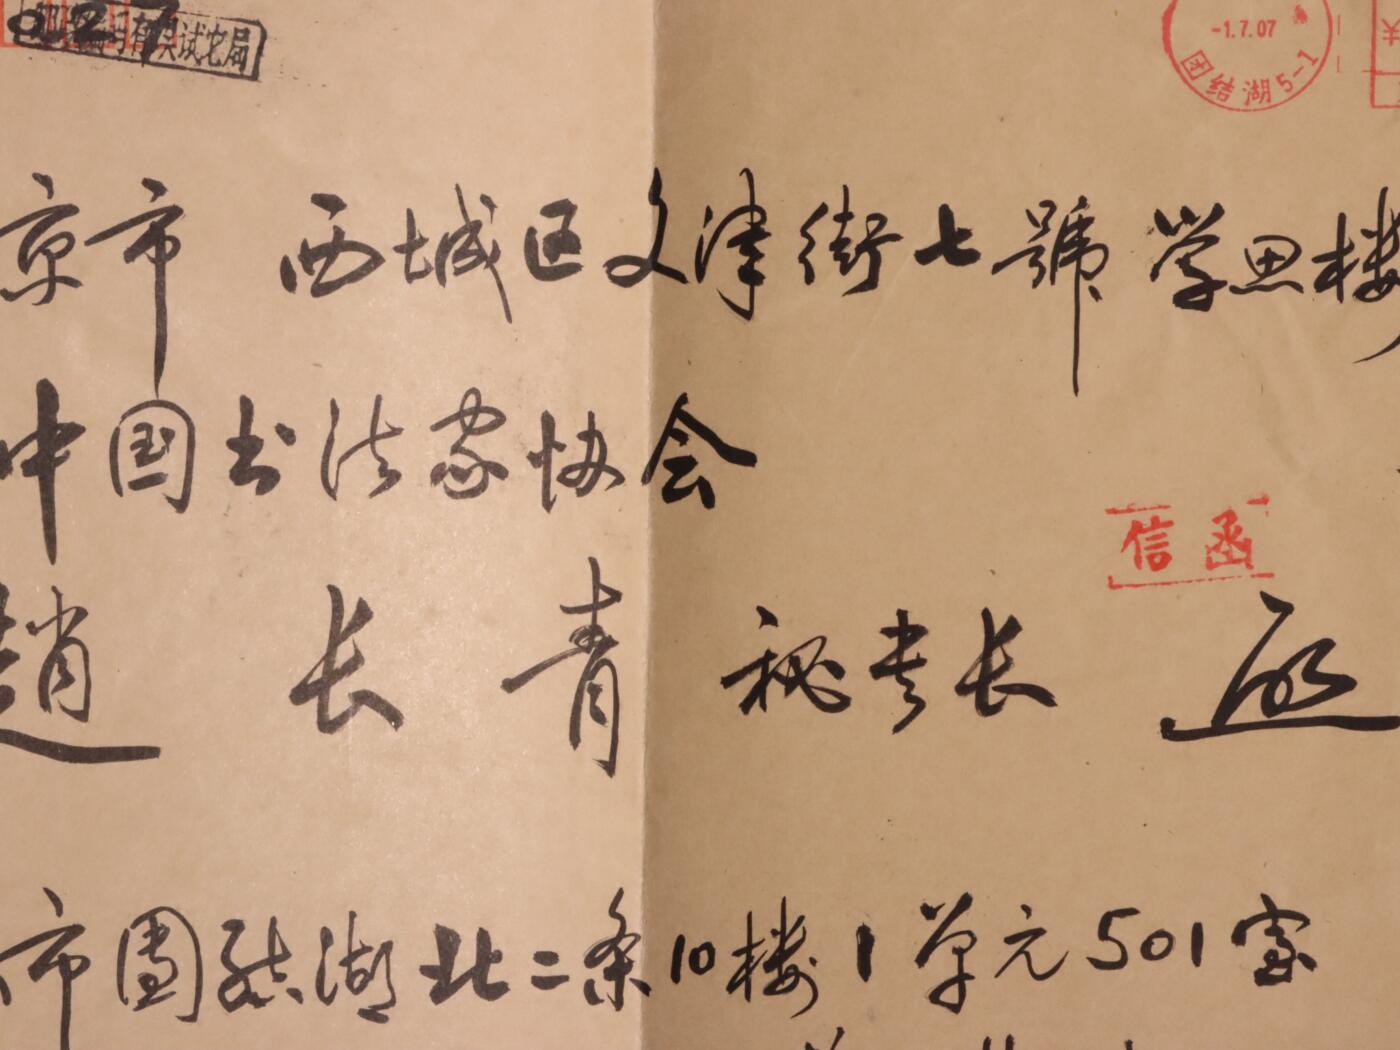 027
-1.7.07
团结湖5-1
京市 西城区文津街七號 学思楼
中国书法家协会
信函
趙 长 青 秘书长 啟
市團结湖北二条10楼1单元501室